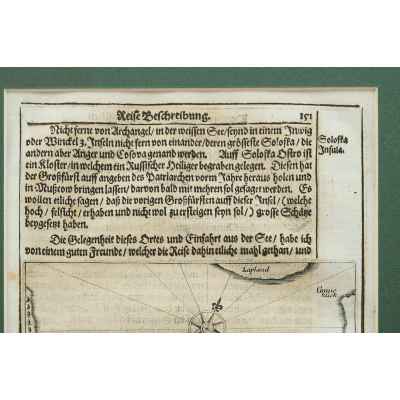 Reise Beschreibung. 151
Nicht ferne von Archangel/ in der weissen See/ seynd in einem Inwig
oder Winckel 3. Inseln nicht fern von einander/ deren grösseste Soloska/ die
andern aber Anger und Cosova genand werden. Auff Soloska Ostro ist
ein Kloster/ in welchem ein Russischer Heiliger begraben gelegen. Diesen hat
der Großfürst auff angeben des Patriarchen vorm Jahre heraus holen und
in Mußcow bringen lassen/ darvon bald mit mehren sol gesaget werden. Es
wollen etliche sagen/ daß die vorigen Großfürsten auff dieser Insel/ (welche
hoch/ felsicht/ erhaben und nicht wol zu ersteigen seyn sol/) grosse Schätze
beygesetzt haben.
Soloska
Insula.
Die Gelegenheit dieses Ortes und Einfahrt aus der See/ habe ich
von einem guten Freunde/ welcher die Reise dahin etliche mahl gethan/ und
Lapland